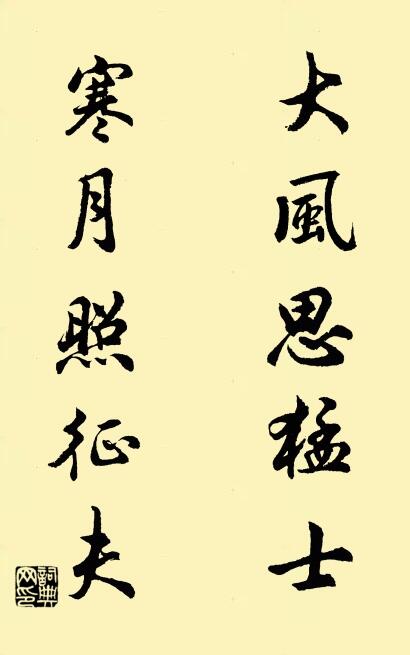 大風思猛士
寒月照征夫
詞典
网印